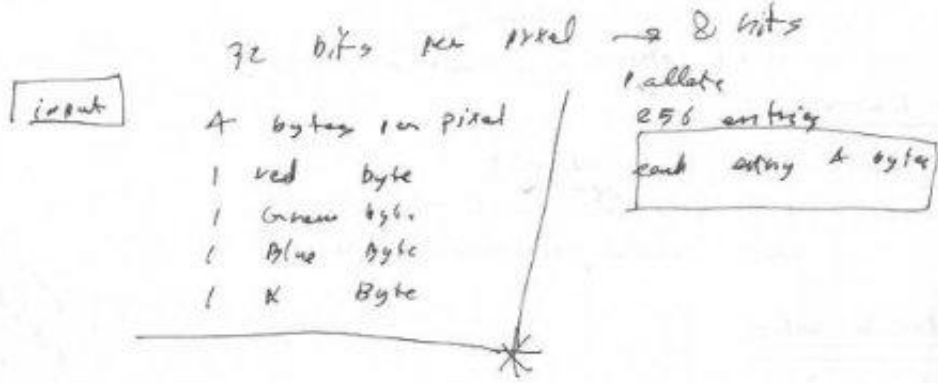 32 bits per pixel → 8 bits
input
4 bytes per pixel
1 red byte
1 Green byte
1 Blue Byte
1 Byte
Pallete
256 entries
each entry 4 bytes